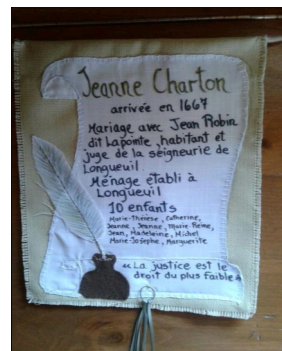 Jeanne Charton
arrivée en 1667
Mariage avec Jean Robin
dit Lapointe, habitant et
juge de la seigneurie de
Longueuil
Ménage établi à
Longueuil
10 enfants
Marie-Thérèse, Catherine,
Jeanne, Jeanne, Marie-Reine,
Jean, Madeleine, Michel
Marie-Josephe, Marguerite
« La justice est le
droit du plus faible »